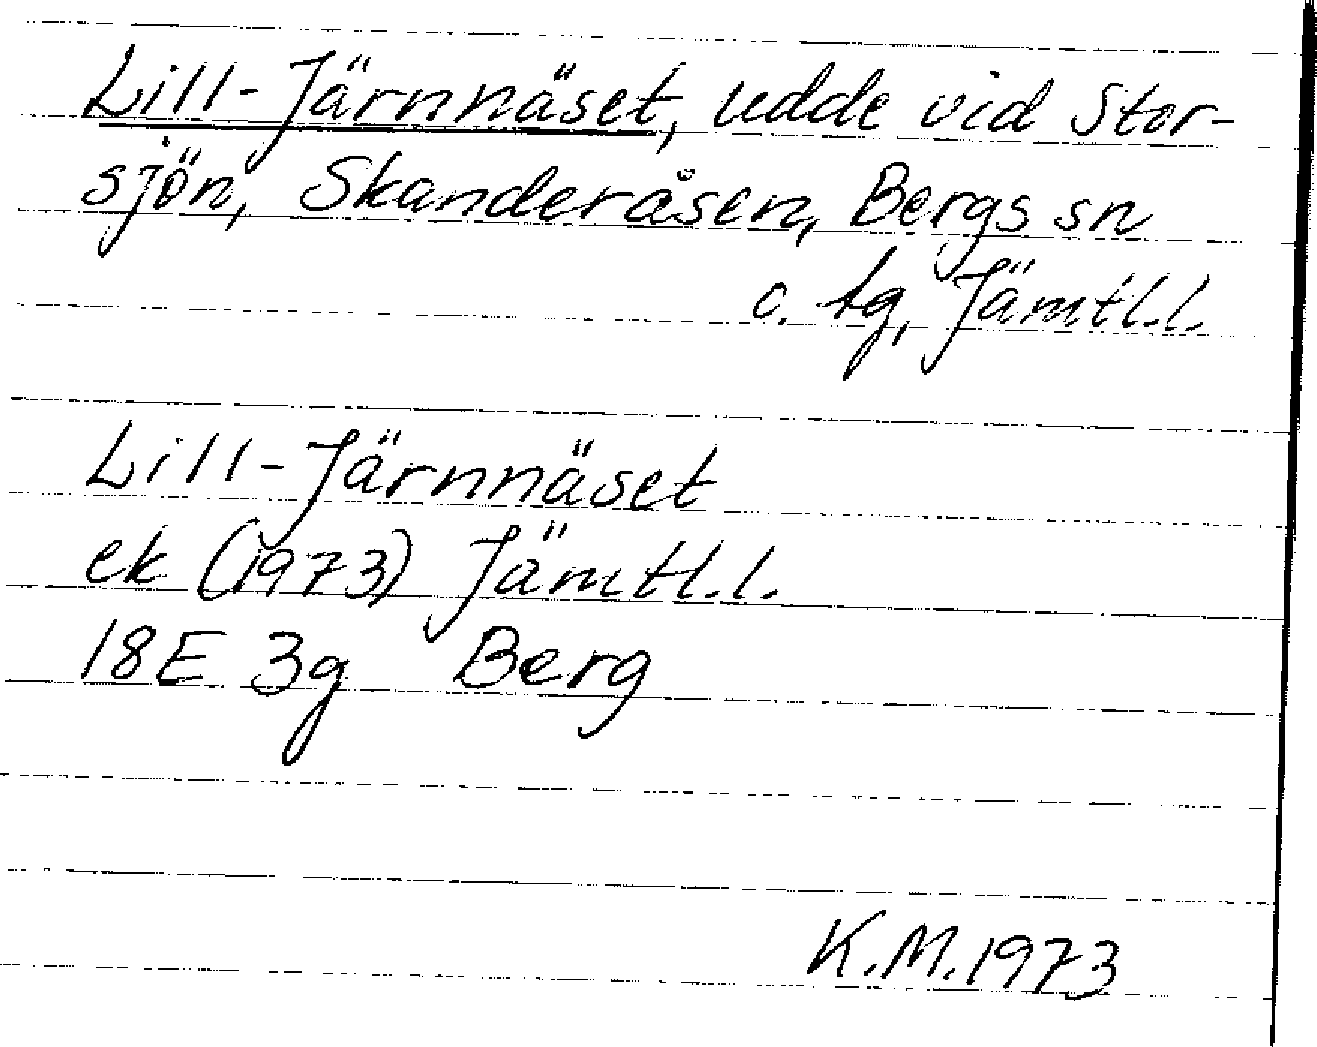 Lill-Järnnäset, udde vid Stor-
sjön, Skanderåsen, Bergs sn
o. tg, Jämtl.l.
Lill-Järnnäset
ek (1973) Jämtl.l.
18E 3g Berg
K.M.1973